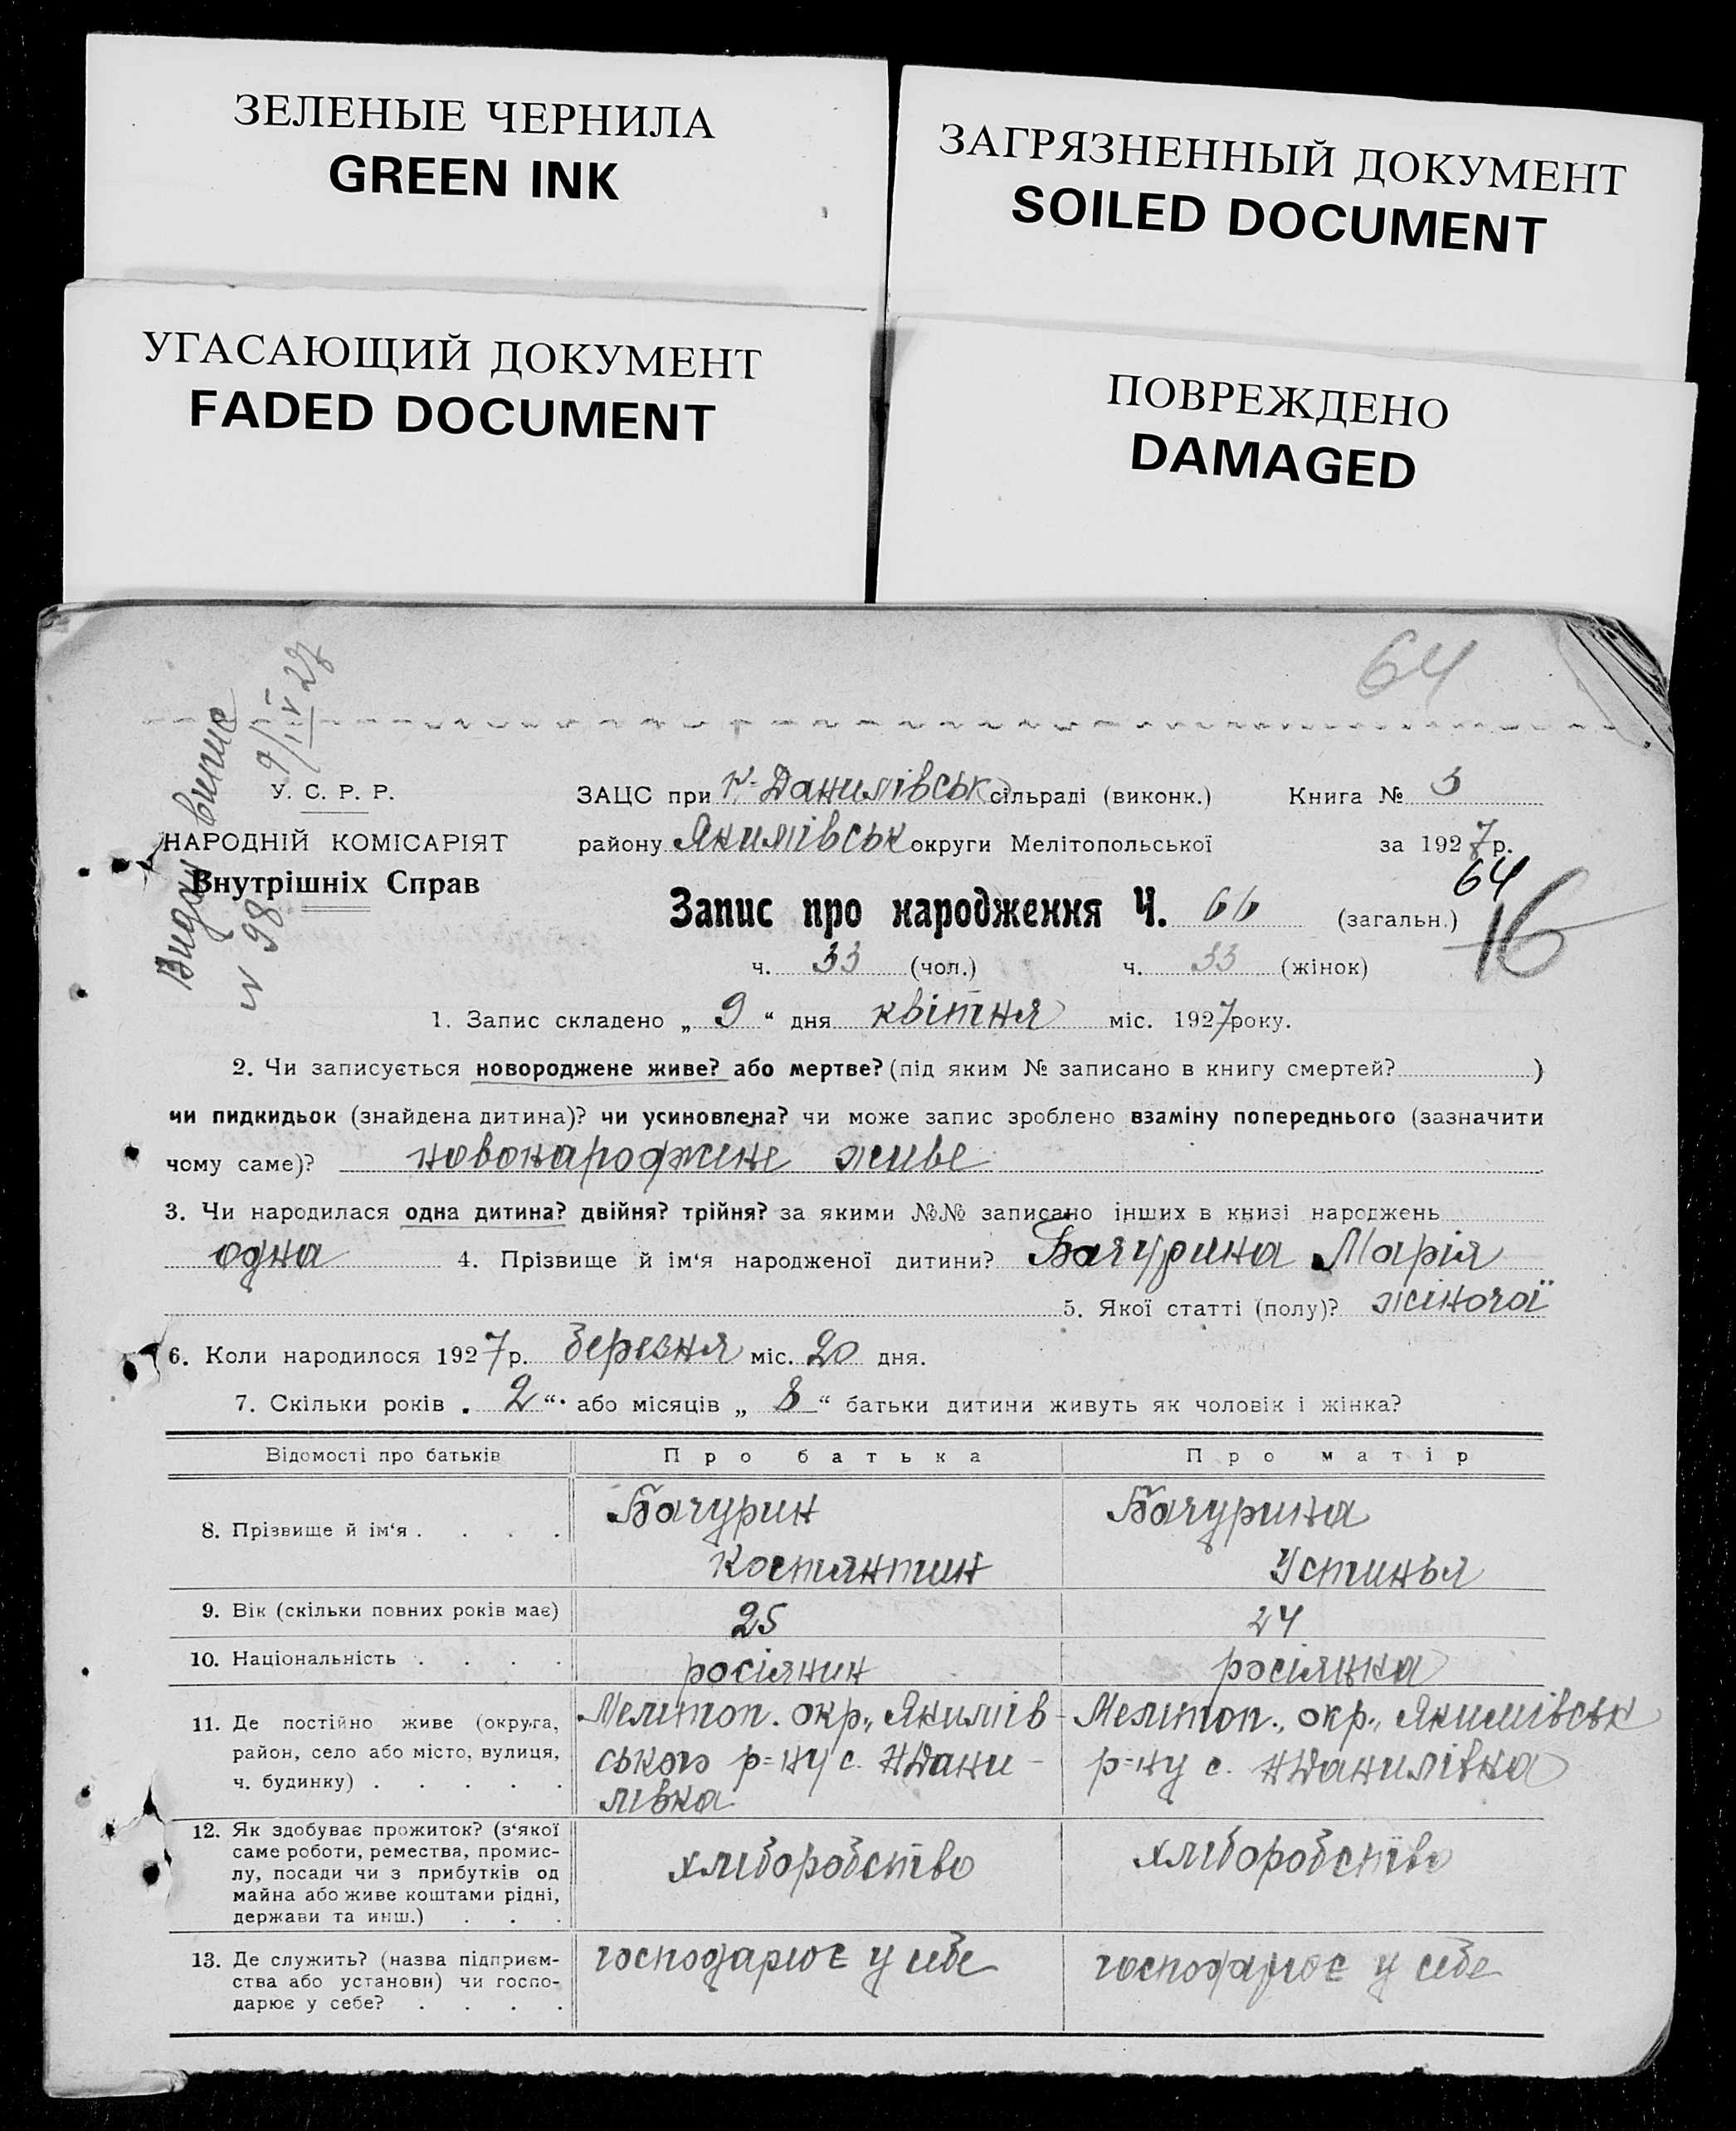 ЗЕЛЕНЫЕ ЧЕРНИЛА
GREEN INK
ЗАГРЯЗНЕННЫЙ ДОКУМЕНТ
SOILED DOCUMENT
УГАСАЮЩИЙ ДОКУМЕНТ
FADED DOCUMENT
ПОВРЕЖДЕНО
DAMAGED
64
Видан випис
№ 98 9/IV 27
У. С. Р. Р.
НАРОДНІЙ КОМІСАРІЯТ
Внутрішніх Справ
ЗАЦС при Н-Данилівськ сільраді (виконк.) Книга № 3
району Якимівськ округи Мелітопольської за 1927 р.
64
Запис про народження Ч. 66 (загальн.) 16
ч. 33 (чол.) ч. 33 (жінок)
1. Запис складено „ 9 “ дня квітня міс. 1927 року.
2. Чи записується новороджене живе? або мертве? (під яким № записано в книгу смертей? )
чи пидкидьок (знайдена дитина)? чи усиновлена? чи може запис зроблено взаміну попереднього (зазначити
чому саме)? новонароджене живе
3. Чи народилася одна дитина? двійня? трійня? за якими №№ записано інших в книзі народжень
одна 4. Прізвище й ім‘я народженої дитини? Бачурина Марія
5. Якої статті (полу)? жіночої
6. Коли народилося 1927 р. березня міс. 20 дня.
7. Скільки років „ 2 “ або місяців „ 8 “ батьки дитини живуть як чоловік і жінка?
Відомості про батьків Про батька Про матір
8. Прізвище й ім‘я . . . . Бачурин Костянтин Бачурина Устинья
9. Вік (скільки повних років має) 25 24
10. Національність . . . . росіянин росіянка
11. Де постійно живе (округа,
район, село або місто, вулиця,
ч. будинку) . . . . .
Мелітоп. окр., Якимів-
ського р=ну с. НДани-
лівка
Мелітоп., окр., Якимівськ
р=ну с. НДанилівка
12. Як здобуває прожиток? (з‘якої
саме роботи, ремества, промис-
лу, посади чи з прибутків од
майна або живе коштами рідні,
держави та инш.) . . .
хліборобство
хліборобство
13. Де служить? (назва підприєм-
ства або установи) чи госпо-
дарює у себе? . . . .
господарює у себе
господарює у себе